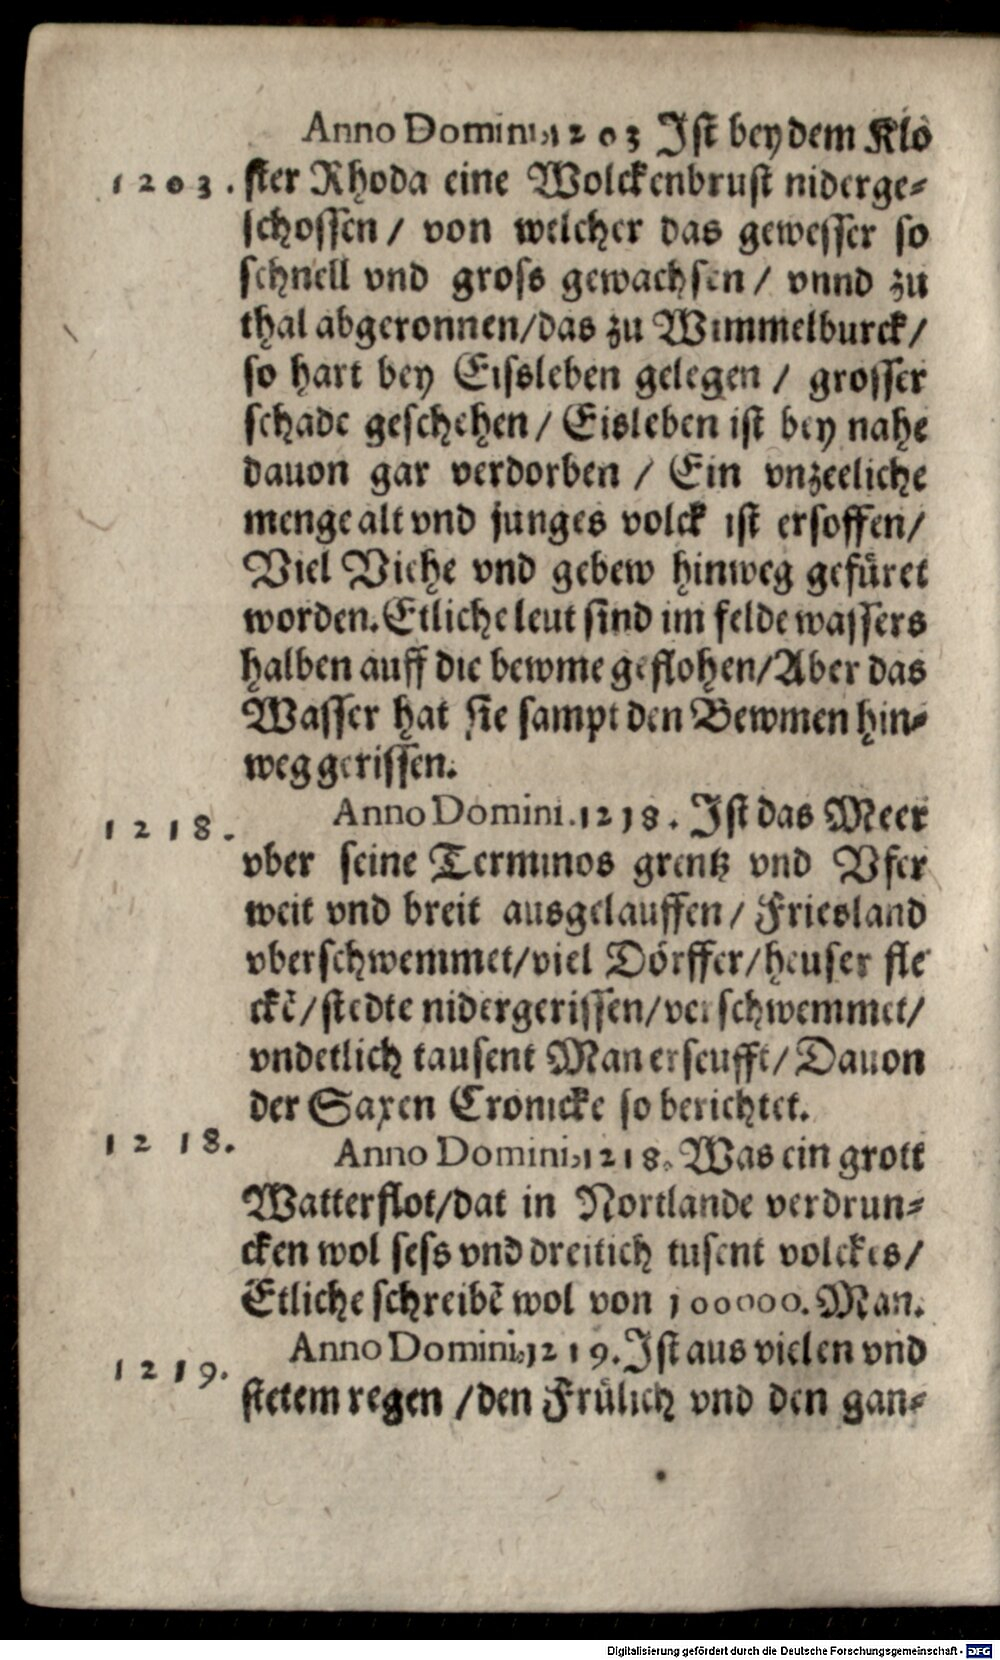 Anno Domini, 1203 Ist bey dem Klo
1203. ster Rhoda eine Wolckenbrust niderge-
schossen / von welcher das gewesser so
schnell vnd gross gewachsen / vnnd zu
thal abgeronnen/das zu Wimmelburck/
so hart bey Eissleben gelegen / grosser
schade geschehen / Eisleben ist bey nahe
dauon gar verdorben / Ein vnzeeliche
menge alt vnd junges volck ist ersoffen/
Viel Viehe vnd gebew hinweg gefüret
worden. Etliche leut sind im felde wassers
halben auff die bewme geflohen/Aber das
Wasser hat sie sampt den Bewmen hin-
weg gerissen.
1218. Anno Domini. 1218. Ist das Meer
vber seine Terminos grentz vnd Vfer
weit vnd breit ausgelauffen / Friesland
vberschwemmet/viel Dörffer/heuser fle
ckẽ/stedte nidergerissen/verschwemmet/
vndetlich tausent Man erseufft/Dauon
der Saxen Cronicke so berichtet.
1218. Anno Domini, 1218. Was ein grott
Watterflot/dat in Nortlande verdrun-
cken wol sess vnd dreitich tusent volckes/
Etliche schreibẽ wol von 100000. Man.
1219. Anno Domini, 1219. Ist aus vielen vnd
stetem regen /den Frülich vnd den gan-
Digitalisierung gefördert durch die Deutsche Forschungsgemeinschaft - DFG